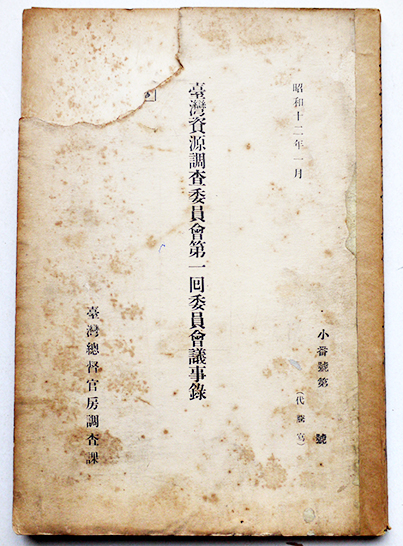 昭和十二年一月
小番號第 號
(代謄寫)
臺灣資源調查委員會第一回委員會議事錄
臺灣總督官房調查課